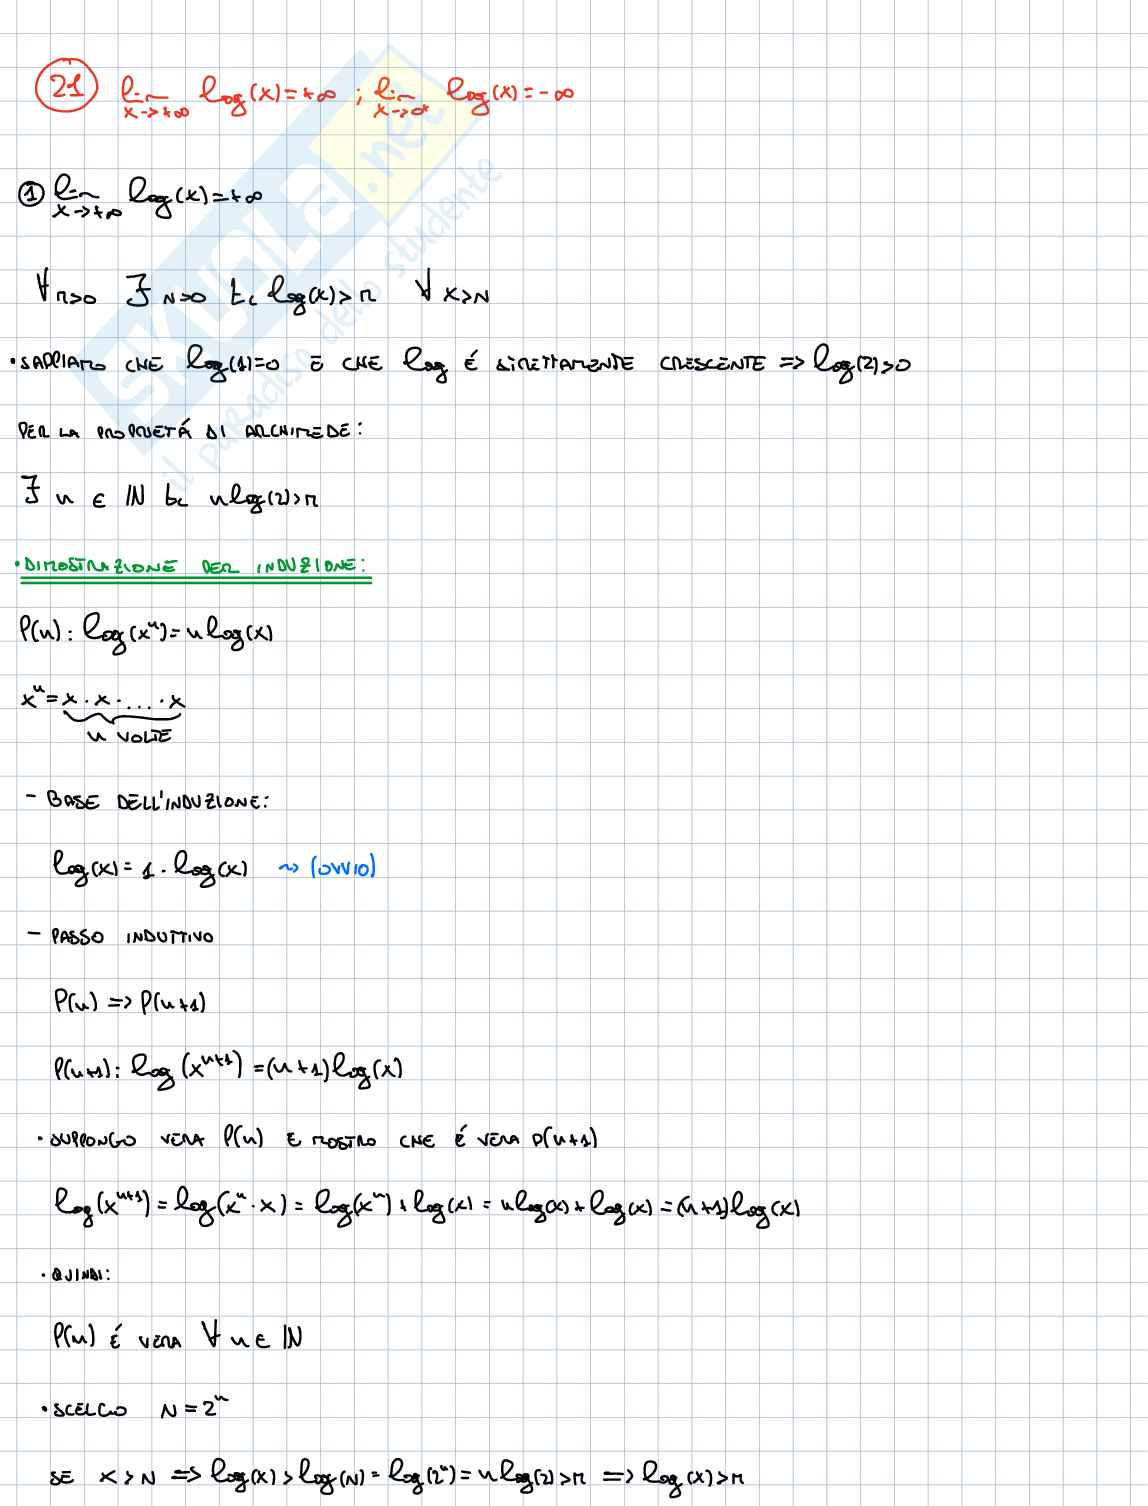 21 lim x→+∞ log(x)=+∞ ; lim x→0⁺ log(x)=-∞
① lim x→+∞ log(x)=+∞
∀ M>0 ∃ N>0 tc log(x)>M ∀ x>N
• SAPPIAMO CHE log(1)=0 E CHE log É STRETTAMENTE CRESCENTE => log(2)>0
PER LA PROPRIETÁ DI ARCHIMEDE:
∃ n ∈ ℕ tc nlog(2)>M
• DIMOSTRAZIONE PER INDUZIONE:
P(n): log(xⁿ)=nlog(x)
xⁿ=x·x·....·x
n VOLTE
- BASE DELL'INDUZIONE:
log(x)=1·log(x) ~> (OVVIO)
- PASSO INDUTTIVO
P(n) => P(n+1)
P(n+1): log(xⁿ⁺¹)=(n+1)log(x)
• SUPPONGO VERA P(n) E MOSTRO CHE É VERA P(n+1)
log(xⁿ⁺¹)=log(xⁿ·x)=log(xⁿ)+log(x)=nlog(x)+log(x)=(n+1)log(x)
• QUINDI:
P(n) É VERA ∀ n ∈ ℕ
• SCELGO N=2ⁿ
SE x>N => log(x)>log(N)=log(2ⁿ)=nlog(2)>M => log(x)>M
SKUOLA.net
il paradiso dello studente